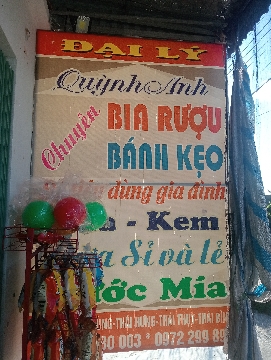 ĐẠI LÝ
Quỳnh Anh
Chuyên
BIA RƯỢU
BÁNH KẸO
dùng gia đình
- Kem
Sỉ và lẻ
Mía
THÁI HƯNG - THÁI THỤY - THÁI BÌNH
0 003 * 0972 299 89